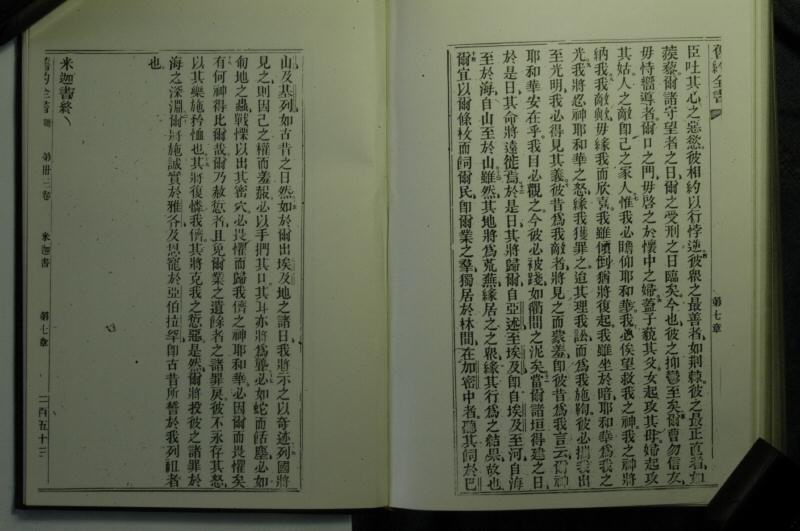 舊約全書
第七章
臣吐其心之惡慾彼相約以行悖逆彼衆之最善者如荊棘彼之最正直者如
蒺藜爾諸守望者之日爾之受刑之日臨矣今也彼之抑鬱至矣爾曹勿信友
毋恃嚮導者爾口之門毋啓之於懷中之婦蓋子藐其父女起攻其母媳起攻
其姑人之敵卽己之家人惟我必瞻仰耶和華我必俟望救我之神我之神將
納我我敵歟毋緣我而欣喜我雖傾倒猶將復起我雖坐於暗耶和華爲我之
光我將忍神耶和華之怒緣我獲罪之迨其理我訟而爲我施鞫彼必攜我出
至光明我必得見其義彼昔爲我敵者將見之而蒙羞卽彼昔爲我言云爾神
耶和華安在乎我目必觀之今彼必被踐如衢間之泥矣當爾諸垣得建之日
於是日其命將遠徙焉於是日其將歸爾自亞述至埃及卽自埃及至河自海
至於海自山至於山雖然其地將爲荒蕪緣居之之衆緣其行爲之結果故也
爾宜以爾條杖而飼爾民卽爾業之羣獨居於林間在加密中者聽其飼於巴
山及基列如古昔之日然如於爾出埃及地之諸日我將示之以奇迹列國將
見之則因己之權而羞赧必以手捫其口其耳亦將爲聾必如蛇而餂塵必如
匍地之蟲戰慄以出其密穴必畏懼而歸我儕之神耶和華必因爾而畏懼矣
有何神得比爾哉爾乃赦愆者且免爾業之遺餘者之諸罪戾彼不永存其怒
以其樂施矜恤也其將復憐我儕其將克我之愆惡是然爾將投彼之諸罪於
海之深淵爾將施誠實於雅各及恩寵於亞伯拉罕卽古昔所誓於我列祖者
也
米迦書終
舊約全書 第卅三卷 米迦書 第七章 二百五十三